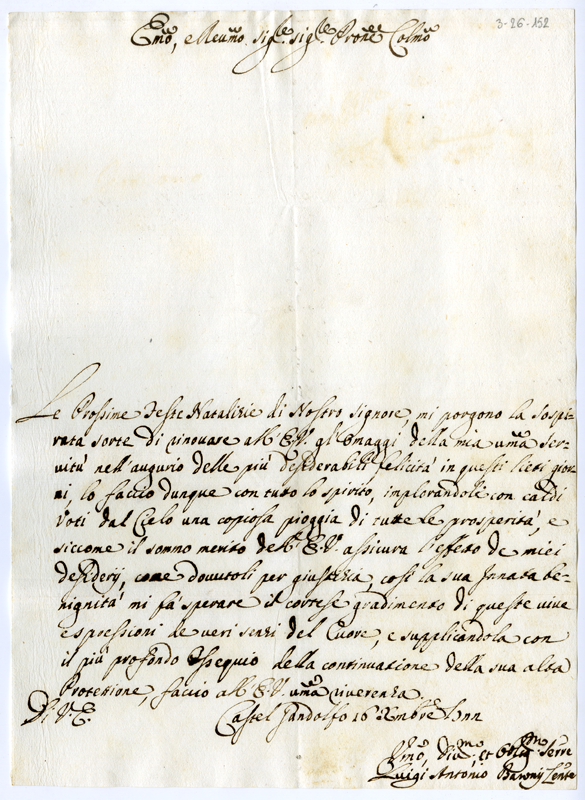 3-26-152
Emo, e Reumo. Sigre. sigre. Prone Colmo
Le Prossime Feste Natalizie di Nostro Signore, mi porgono la sospi-
rata sorte di rinouare all' E.V. gli Omaggi della mia uma ser-
vitù nell'augurio delle più desiderabili felicità in questi lieti gior-
ni, lo faccio dunque con tutto lo spirito, implorandole con caldi
Voti dal Cielo una copiosa pioggia di tutte le prosperità, e
siccome il sommo merito dell' E.V. assicura l'effetto de miei
desiderij, come douutoli per giustizia, così la sua Innata be-
nignità mi fà sperare il cortese gradimento di queste viue
espressioni de veri sensi del Cuore, e supplicandola con
il più profondo Ossequio della continuazione della sua alta
Protezione, faccio all' E.V. uma riuerenza.
Di V.E.
Castel Gandolfo 16 Xmbre
Umo, Diumo, et Obligmo Serre
Luigi Antonio